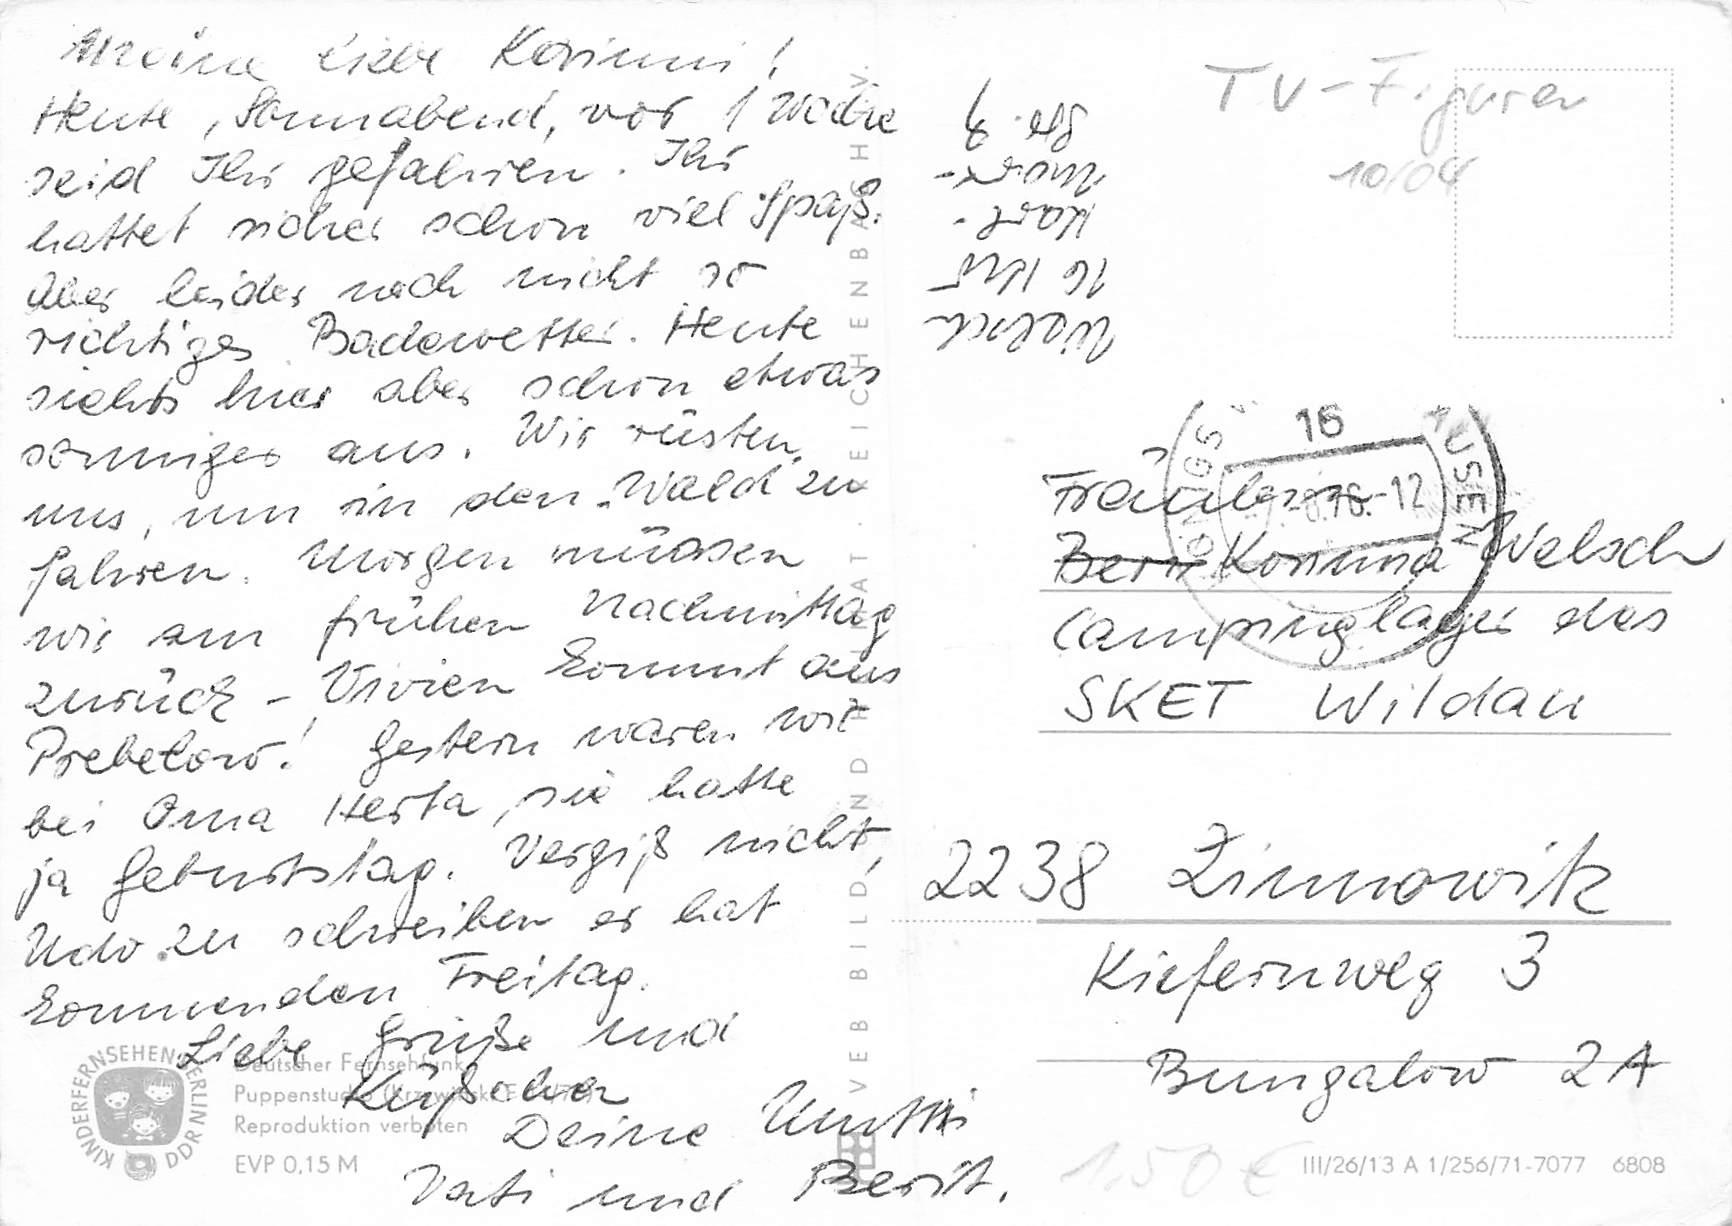 Meine liebe Korinna!
Heute, Sonnabend, vor 1 Woche
seid Ihr gefahren. Ihr
hattet sicher schon viel Spaß.
Aber leider noch nicht so
richtiges Badewetter. Heute
siehts hier aber schon etwas
sonniger aus. Wir rüsten
uns, um in den Wald zu
fahren. Morgen müssen
wir am frühen Nachmittag
zurück – Vivien kommt aus
Prebelow! Gestern waren wir
bei Oma Herta, sie hatte
ja Geburtstag. Vergiß nicht,
Udo zu schreiben er hat
kommenden Freitag.
Liebe Grüße und
Küßchen
Deine Mutti
Vati und Berit.
KINDERFERNSEHEN BERLIN DDR
Deutscher Fernsehfunk
Puppenstudio
Reproduktion verboten
EVP 0,15 M
VEB BILD UND HEIMAT · REICHENBACH i. V.
Welsch
16 KW
Karl-
Marx-
Str. 9
TV-Figuren
10/04
KÖNIGS WUSTERHAUSEN
16
.76.-12
Fräulein
Berit Korinna Welsch
Campinglager des
SKET Wildau
2238 Zinnowitz
Kiefernweg 3
Bungalow 2A
1,50 €
III/26/13 A 1/256/71-7077 6808